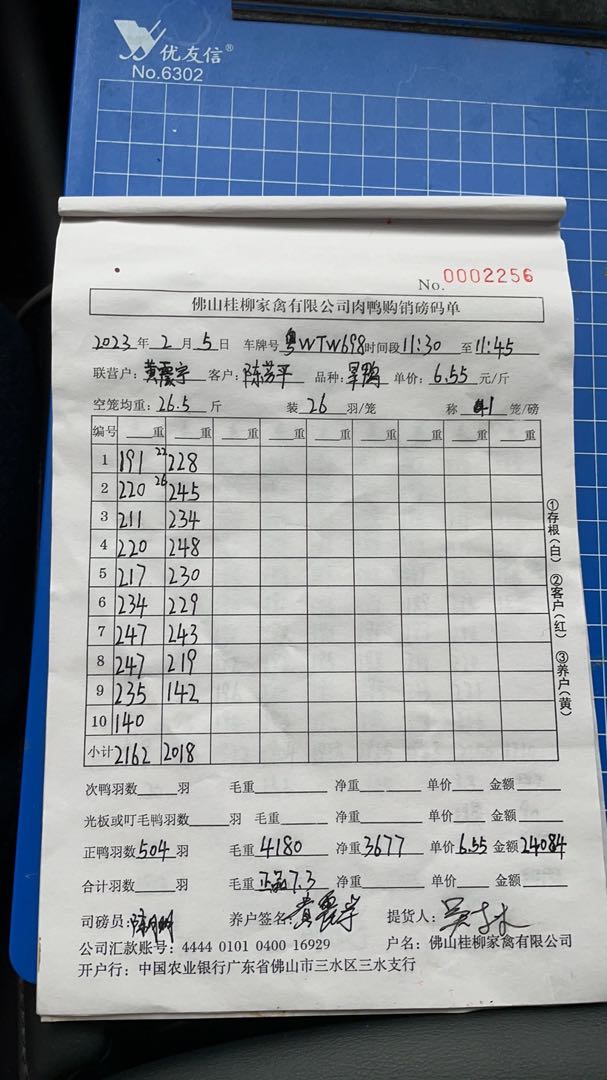 优友信®
No.6302
No. 0002256
佛山桂柳家禽有限公司肉鸭购销磅码单
2023年2月5日 车牌号 粤WTW698 时间段 11:30 至 11:45
联营户：黄震宇 客户：陈芳平 品种：旱鸭 单价：6.55 元/斤
空笼均重：26.5 斤 装 26 羽/笼 称 1 笼/磅
编号 重 重 重 重 重 重 重 重 重
1 191 22 228
2 220 26 245
3 211 234
4 220 248
5 217 230
6 234 229
7 247 243
8 247 219
9 235 142
10 140
小计 2162 2018
①存根（白） ②客户（红） ③养户（黄）
次鸭羽数 羽 毛重 净重 单价 金额
光板或叮毛鸭羽数 羽 毛重 净重 单价 金额
正鸭羽数 504 羽 毛重 4180 净重 3677 单价 6.55 金额 24084
合计羽数 羽 毛重 7.3 净重 单价 金额
司磅员： 养户签名：黄震宇 提货人：
公司汇款账号：4444 0101 0400 16929 户名：佛山桂柳家禽有限公司
开户行：中国农业银行广东省佛山市三水区三水支行